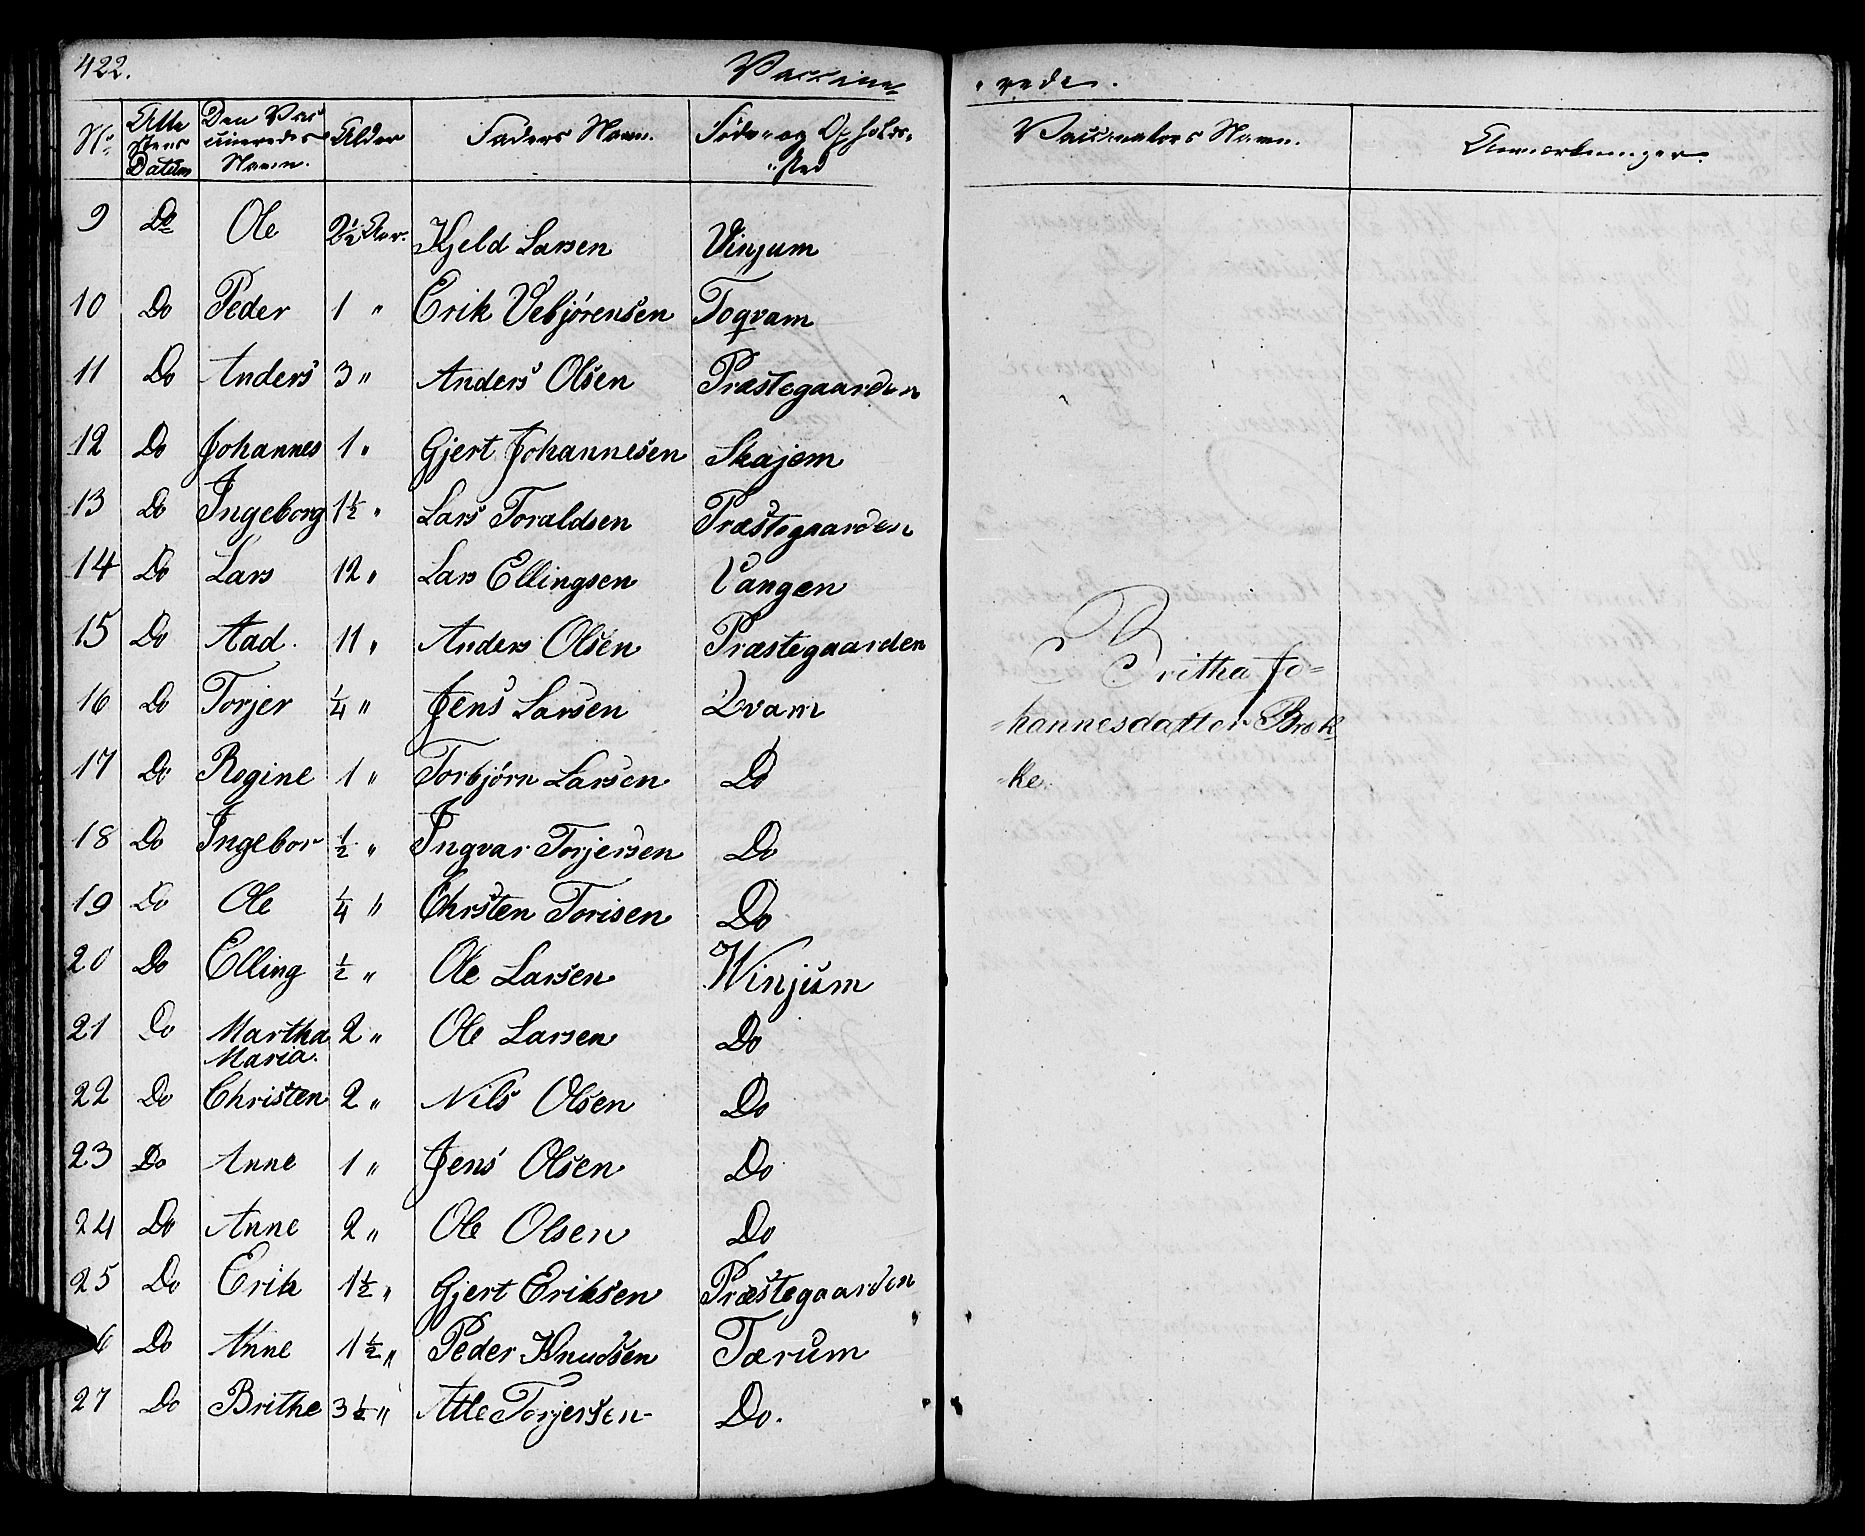 422. Vaccine- -rede.
No. Atte- stens Datum Den Vac cineredes Navn. Alder Faders Navn. Føde- og Opholds- -sted Vaccinators Navn. Anmærkninger.
9 Do Ole 2½ Aar. Kjeld Larsen Vinjum
10 Do Peder 1 " Erik Vebjørensen Toqvam
11 Do Anders 3 " Anders Olsen Præstegaarden
12 Do Johannes 1 " Gjert Johannesen Skajem
13 Do Ingeborg 1½ " Lars Toraldsen Præstegaarden
14 Do Lars 12 " Lars Ellingsen Vangen
15 Do Aad. 11 " Anders Olsen Præstegaarden Britha Jo=
16 Do Torjer ¼ " Jens Larsen Qvam -hannesdatter Brek
17 Do Regine 1 " Torbjørn Larsen Do -ke.
18 Do Ingebor ½ " Ingvar Torjersen Do
19 Do Ole ¼ " Chrsten Torisen Do
20 Do Elling ½ " Ole Larsen Winjum
21 Do Martha Maria. 2 " Ole Larsen Do
22 Do Christen 2 " Nils Olsen Do
23 Do Anne 1 " Jens Olsen Do
24 Do Anne 2 " Ole Olsen Do
25 Do Erik 1½ " Gjert Eriksen Præstegaarden
6 Do Anne 1½ " Peder Knudsen Tærum
27 Do Brithe 3½ " Atle Torjersen Do.